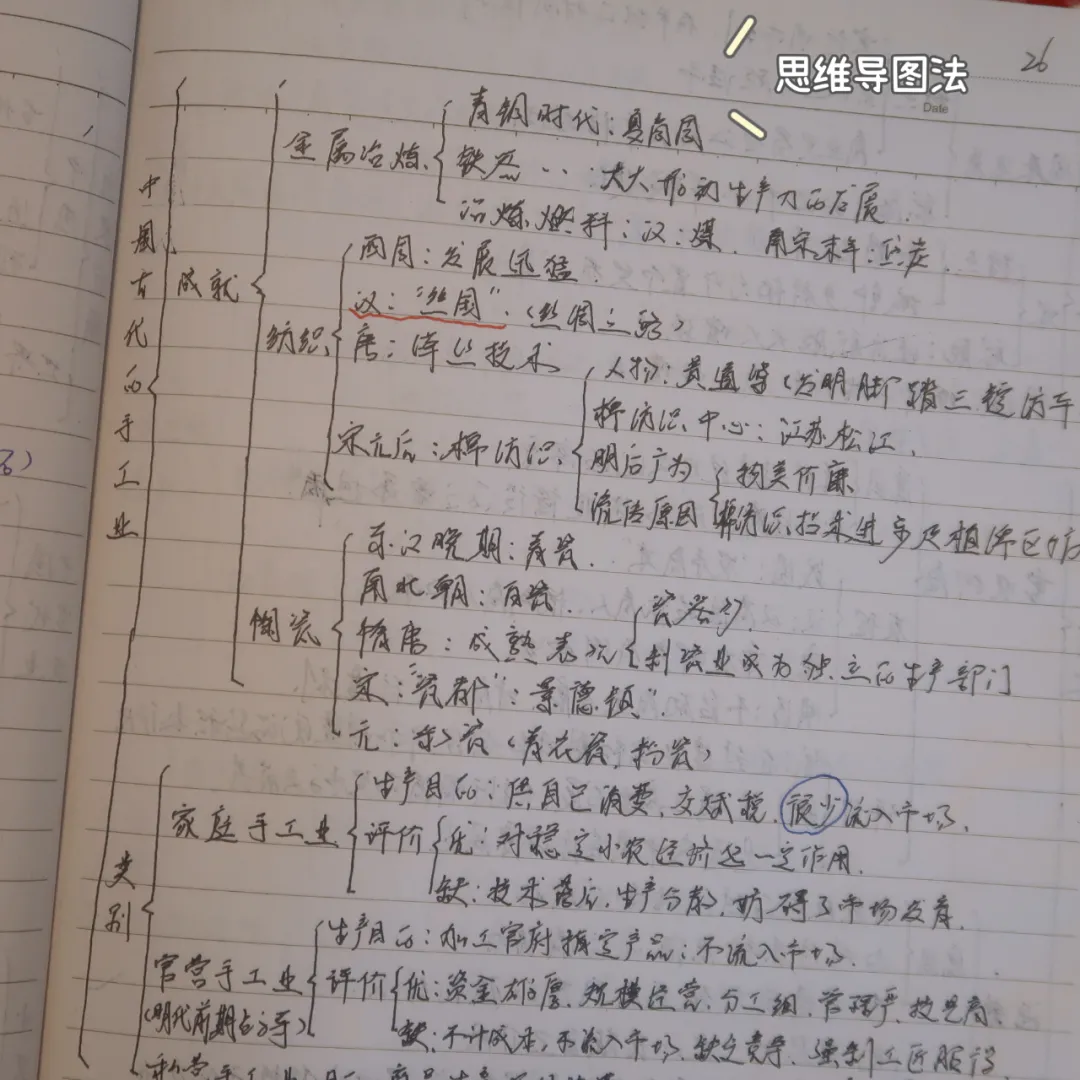 思维导图法
26
Date
中国古代的手工业
成就
金属冶炼
青铜时代：夏商周
铁器...：大大推动生产力的发展.
冶炼燃料：汉：煤. 南宋末年：焦炭.
纺织
西周：发展迅猛
汉："丝国".（丝绸之路）
唐：缂丝技术
宋元后：棉纺织.
人物：黄道婆（发明脚踏三锭纺车
棉纺织中心：江苏松江.
明后广为流传原因
物美价廉
棉纺织技术进步及植棉区扩
陶瓷
东汉晚期：青瓷.
南北朝：白瓷.
隋唐：成熟表现
瓷器多.
制瓷业成为独立的生产部门
宋："瓷都"：景德镇"
元：彩瓷（青花瓷，粉瓷）
类别
家庭手工业
生产目的：供自己消费，交赋税，很少流入市场.
评价
优：对稳定小农经济起一定作用.
缺：技术落后，生产分散，妨碍了市场发育.
官营手工业
(明代前期占主导)
生产目的：加工官府指定产品；不流入市场.
评价
优：资金雄厚、规模经营、分工细、管理严、技艺高.
缺：不计成本，不流入市场，缺乏竞争、强制工匠服役